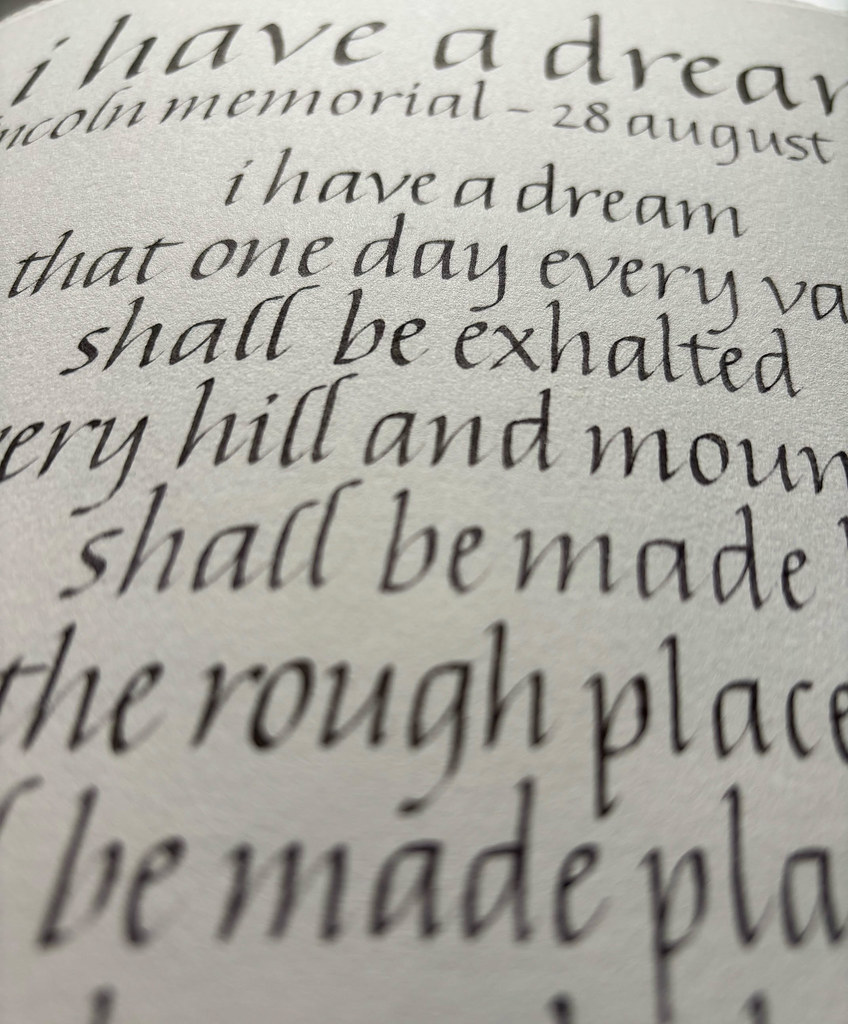 i have a drea
ncoln memorial - 28 august
i have a dream
that one day every va
shall be exhalted
ery hill and moun
shall be made
the rough place
be made pla